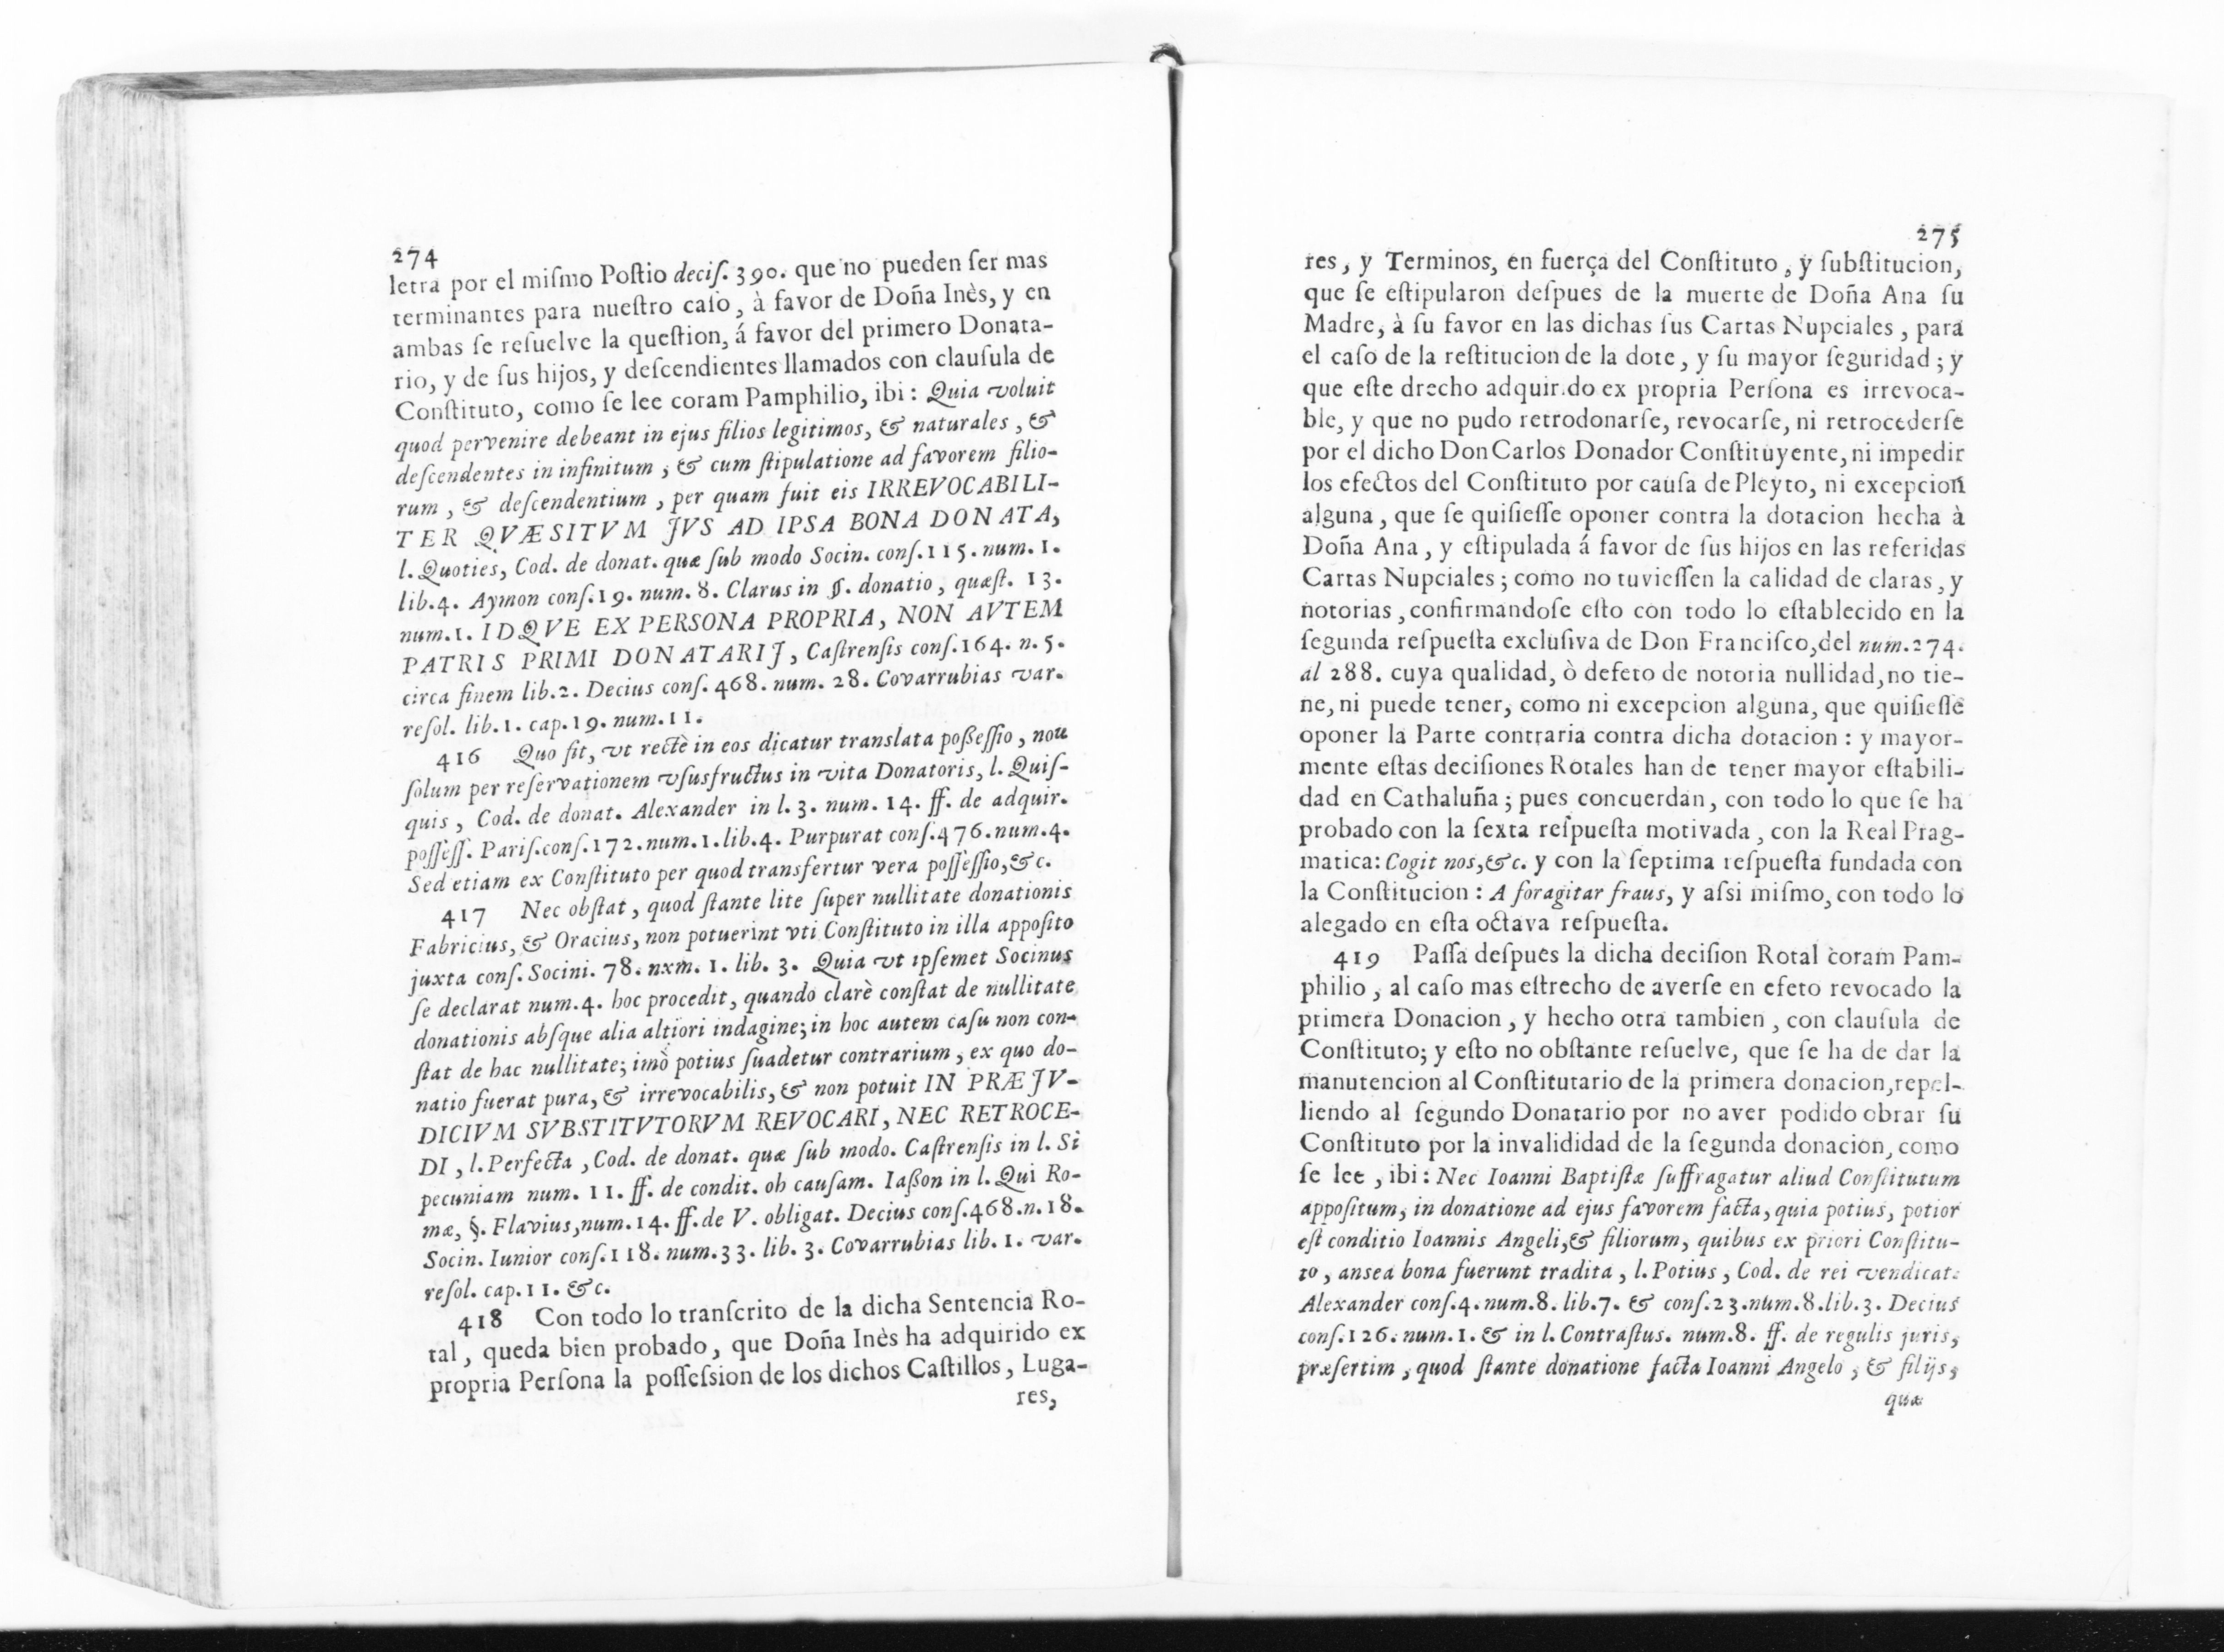 274
letra por el miſmo Poſtio deciſ. 390. que no pueden ſer mas
terminantes para nueſtro caſo, à favor de Doña Inès, y en
ambas ſe reſuelve la queſtion, á favor del primero Donata-
rio, y de ſus hijos, y deſcendientes llamados con clauſula de
Conſtituto, como ſe lee coram Pamphilio, ibi: Quia voluit
quod pervenire debeant in ejus filios legitimos, & naturales, &
deſcendentes in infinitum; & cum ſtipulatione ad favorem filio-
rum, & deſcendentium, per quam fuit eis IRREVOCABILI-
TER QVÆSITVM JVS AD IPSA BONA DONATA,
l. Quoties, Cod. de donat. quæ ſub modo Socin. conſ. 115. num. 1.
lib. 4. Aymon conſ. 19. num. 8. Clarus in §. donatio, quæſt. 13.
num. 1. IDQVE EX PERSONA PROPRIA, NON AVTEM
PATRIS PRIMI DONATARIJ, Caſtrenſis conſ. 164. n. 5.
circa finem lib. 2. Decius conſ. 468. num. 28. Covarrubias var.
reſol. lib. 1. cap. 19. num. 11.
416 Quo fit, vt rectè in eos dicatur translata poßeſſio, non
ſolum per reſervationem vſusfructus in vita Donatoris, l. Quiſ-
quis, Cod. de donat. Alexander in l. 3. num. 14. ff. de adquir.
poſſeſſ. Pariſ. conſ. 172. num. 1. lib. 4. Purpurat conſ. 476. num. 4.
Sed etiam ex Conſtituto per quod transfertur vera poſſeſſio, &c.
417 Nec obſtat, quod ſtante lite ſuper nullitate donationis
Fabricius, & Oracius, non potuerint vti Conſtituto in illa appoſito
juxta conſ. Socini. 78. nxm. 1. lib. 3. Quia vt ipſemet Socinus
ſe declarat num. 4. hoc procedit, quando clarè conſtat de nullitate
donationis abſque alia altiori indagine; in hoc autem caſu non con-
ſtat de hac nullitate; imò potius ſuadetur contrarium, ex quo do-
natio fuerat pura, & irrevocabilis, & non potuit IN PRÆJV-
DICIVM SVBSTITVTORVM REVOCARI, NEC RETROCE-
DI, l. Perfecta, Cod. de donat. quæ ſub modo. Caſtrenſis in l. Si
pecuniam num. 11. ff. de condit. ob cauſam. Iaßon in l. Qui Ro-
mæ, §. Flavius, num. 14. ff. de V. obligat. Decius conſ. 468. n. 18.
Socin. Iunior conſ. 118. num. 33. lib. 3. Covarrubias lib. 1. var.
reſol. cap. 11. &c.
418 Con todo lo tranſcrito de la dicha Sentencia Ro-
tal, queda bien probado, que Doña Inès ha adquirido ex
propria Perſona la poſſeſsion de los dichos Caſtillos, Luga-
res,
275
res, y Terminos, en fuerça del Conſtituto, y ſubſtitucion,
que ſe eſtipularon deſpues de la muerte de Doña Ana ſu
Madre, à ſu favor en las dichas ſus Cartas Nupciales, para
el caſo de la reſtitucion de la dote, y ſu mayor ſeguridad; y
que eſte drecho adquirido ex propria Perſona es irrevoca-
ble, y que no pudo retrodonarſe, revocarſe, ni retrocederſe
por el dicho Don Carlos Donador Conſtituyente, ni impedir
los efectos del Conſtituto por cauſa de Pleyto, ni excepcion
alguna, que ſe quiſieſſe oponer contra la dotacion hecha à
Doña Ana, y eſtipulada á favor de ſus hijos en las referidas
Cartas Nupciales; como no tuvieſſen la calidad de claras, y
notorias, confirmandoſe eſto con todo lo eſtablecido en la
ſegunda reſpueſta excluſiva de Don Franciſco, del num. 274.
al 288. cuya qualidad, ò defeto de notoria nullidad, no tie-
ne, ni puede tener, como ni excepcion alguna, que quiſieſſe
oponer la Parte contraria contra dicha dotacion: y mayor-
mente eſtas deciſiones Rotales han de tener mayor eſtabili-
dad en Cathaluña; pues concuerdan, con todo lo que ſe ha
probado con la ſexta reſpueſta motivada, con la Real Prag-
matica: Cogit nos, &c. y con la ſeptima reſpueſta fundada con
la Conſtitucion: A foragitar fraus, y aſsi miſmo, con todo lo
alegado en eſta octava reſpueſta.
419 Paſſa deſpues la dicha deciſion Rotal coram Pam-
philio, al caſo mas eſtrecho de averſe en efeto revocado la
primera Donacion, y hecho otra tambien, con clauſula de
Conſtituto; y eſto no obſtante reſuelve, que ſe ha de dar la
manutencion al Conſtitutario de la primera donacion, repel-
liendo al ſegundo Donatario por no aver podido obrar ſu
Conſtituto por la invalididad de la ſegunda donacion, como
ſe lee, ibi: Nec Ioanni Baptiſtæ ſuffragatur aliud Conſtitutum
appoſitum, in donatione ad ejus favorem facta, quia potius, potior
eſt conditio Ioannis Angeli, & filiorum, quibus ex priori Conſtitu-
to, ansea bona fuerunt tradita, l. Potius, Cod. de rei vendicat.
Alexander conſ. 4. num. 8. lib. 7. & conſ. 23. num. 8. lib. 3. Decius
conſ. 126. num. 1. & in l. Contraſtus. num. 8. ff. de regulis juris,
præſertim, quod ſtante donatione facta Ioanni Angelo, & filijs,
quæ